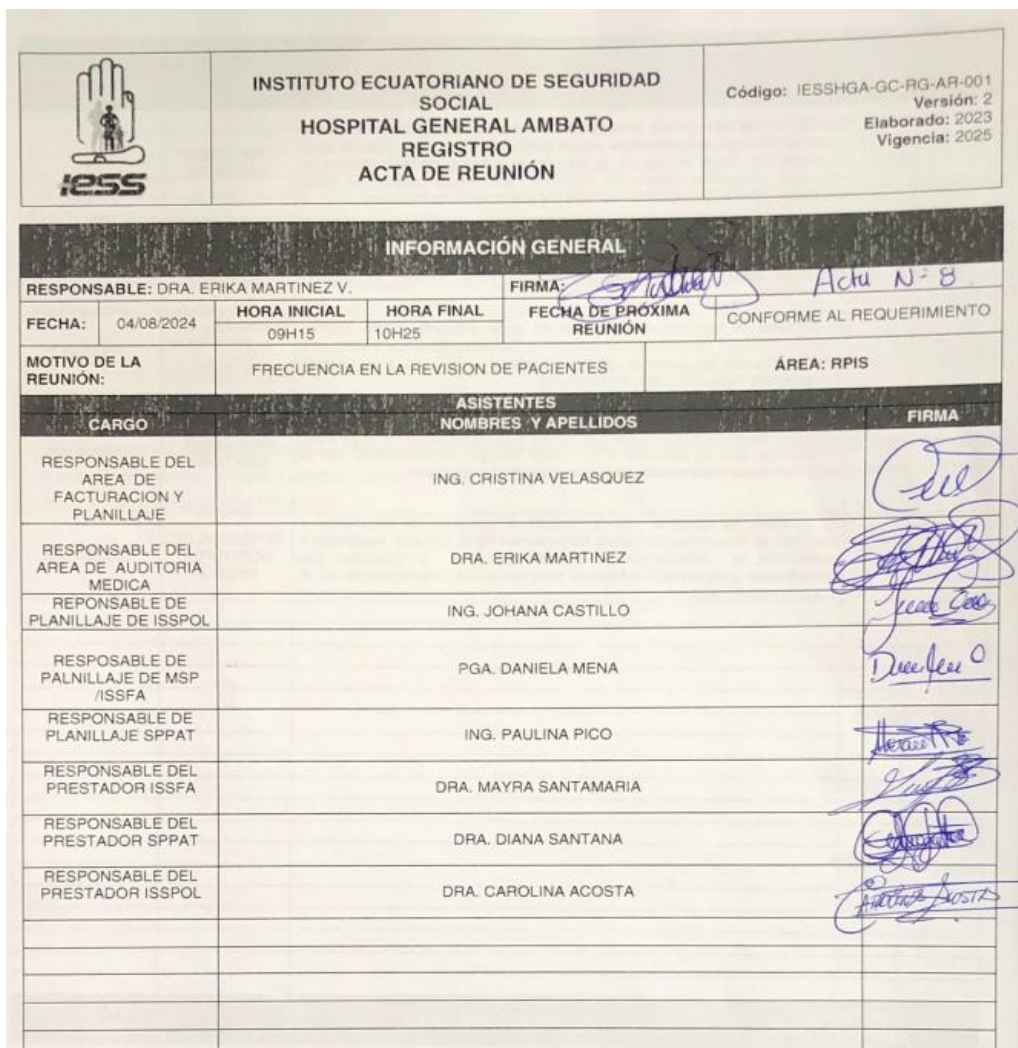 iess
INSTITUTO ECUATORIANO DE SEGURIDAD
SOCIAL
HOSPITAL GENERAL AMBATO
REGISTRO
ACTA DE REUNIÓN
Código: IESSHGA-GC-RG-AR-001
Versión: 2
Elaborado: 2023
Vigencia: 2025
INFORMACIÓN GENERAL
RESPONSABLE: DRA. ERIKA MARTINEZ V.
FIRMA:
Acta Nº 8
FECHA:
04/08/2024
HORA INICIAL
09H15
HORA FINAL
10H25
FECHA DE PRÓXIMA
REUNIÓN
CONFORME AL REQUERIMIENTO
MOTIVO DE LA
REUNIÓN:
FRECUENCIA EN LA REVISION DE PACIENTES
ÁREA: RPIS
ASISTENTES
CARGO
NOMBRES Y APELLIDOS
FIRMA
RESPONSABLE DEL
AREA DE
FACTURACION Y
PLANILLAJE
ING. CRISTINA VELASQUEZ
RESPONSABLE DEL
AREA DE AUDITORIA
MEDICA
DRA. ERIKA MARTINEZ
REPONSABLE DE
PLANILLAJE DE ISSPOL
ING. JOHANA CASTILLO
RESPOSABLE DE
PALNILLAJE DE MSP
/ISSFA
PGA. DANIELA MENA
RESPONSABLE DE
PLANILLAJE SPPAT
ING. PAULINA PICO
RESPONSABLE DEL
PRESTADOR ISSFA
DRA. MAYRA SANTAMARIA
RESPONSABLE DEL
PRESTADOR SPPAT
DRA. DIANA SANTANA
RESPONSABLE DEL
PRESTADOR ISSPOL
DRA. CAROLINA ACOSTA